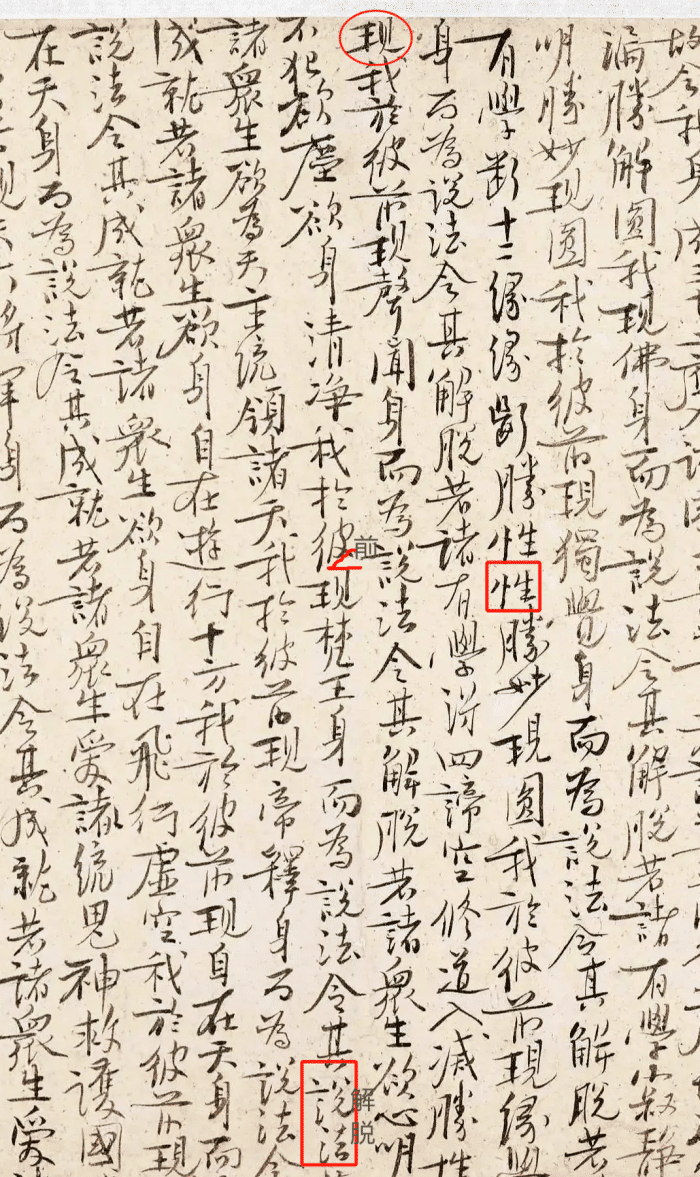 故令我身成三十二應入諸
漏勝解圓我現佛身而為說法令其解脫若諸有學寂靜
明勝妙現圓我於彼前現獨覺身而為說法令其解脫若
有學斷十二緣緣斷勝性性勝妙現圓我於彼前現緣覺
身而為說法令其解脫若諸有學得四諦空修道入滅勝性
現我於彼前現聲聞身而為說法令其解脫若諸衆生欲心明
不犯欲塵欲身清淨我於彼現梵王身而為說法令其說法
前
解脱
諸衆生欲為天主統領諸天我於彼前現帝釋身而為說法令
成就若諸衆生欲身自在遊行十方我於彼前現自在天身而
說法令其成就若諸衆生欲身自在飛行虛空我於彼前現
在天身而為說法令其成就若諸衆生愛諸統鬼神救護國
現天大將軍身而為說法令其成就若諸衆生愛